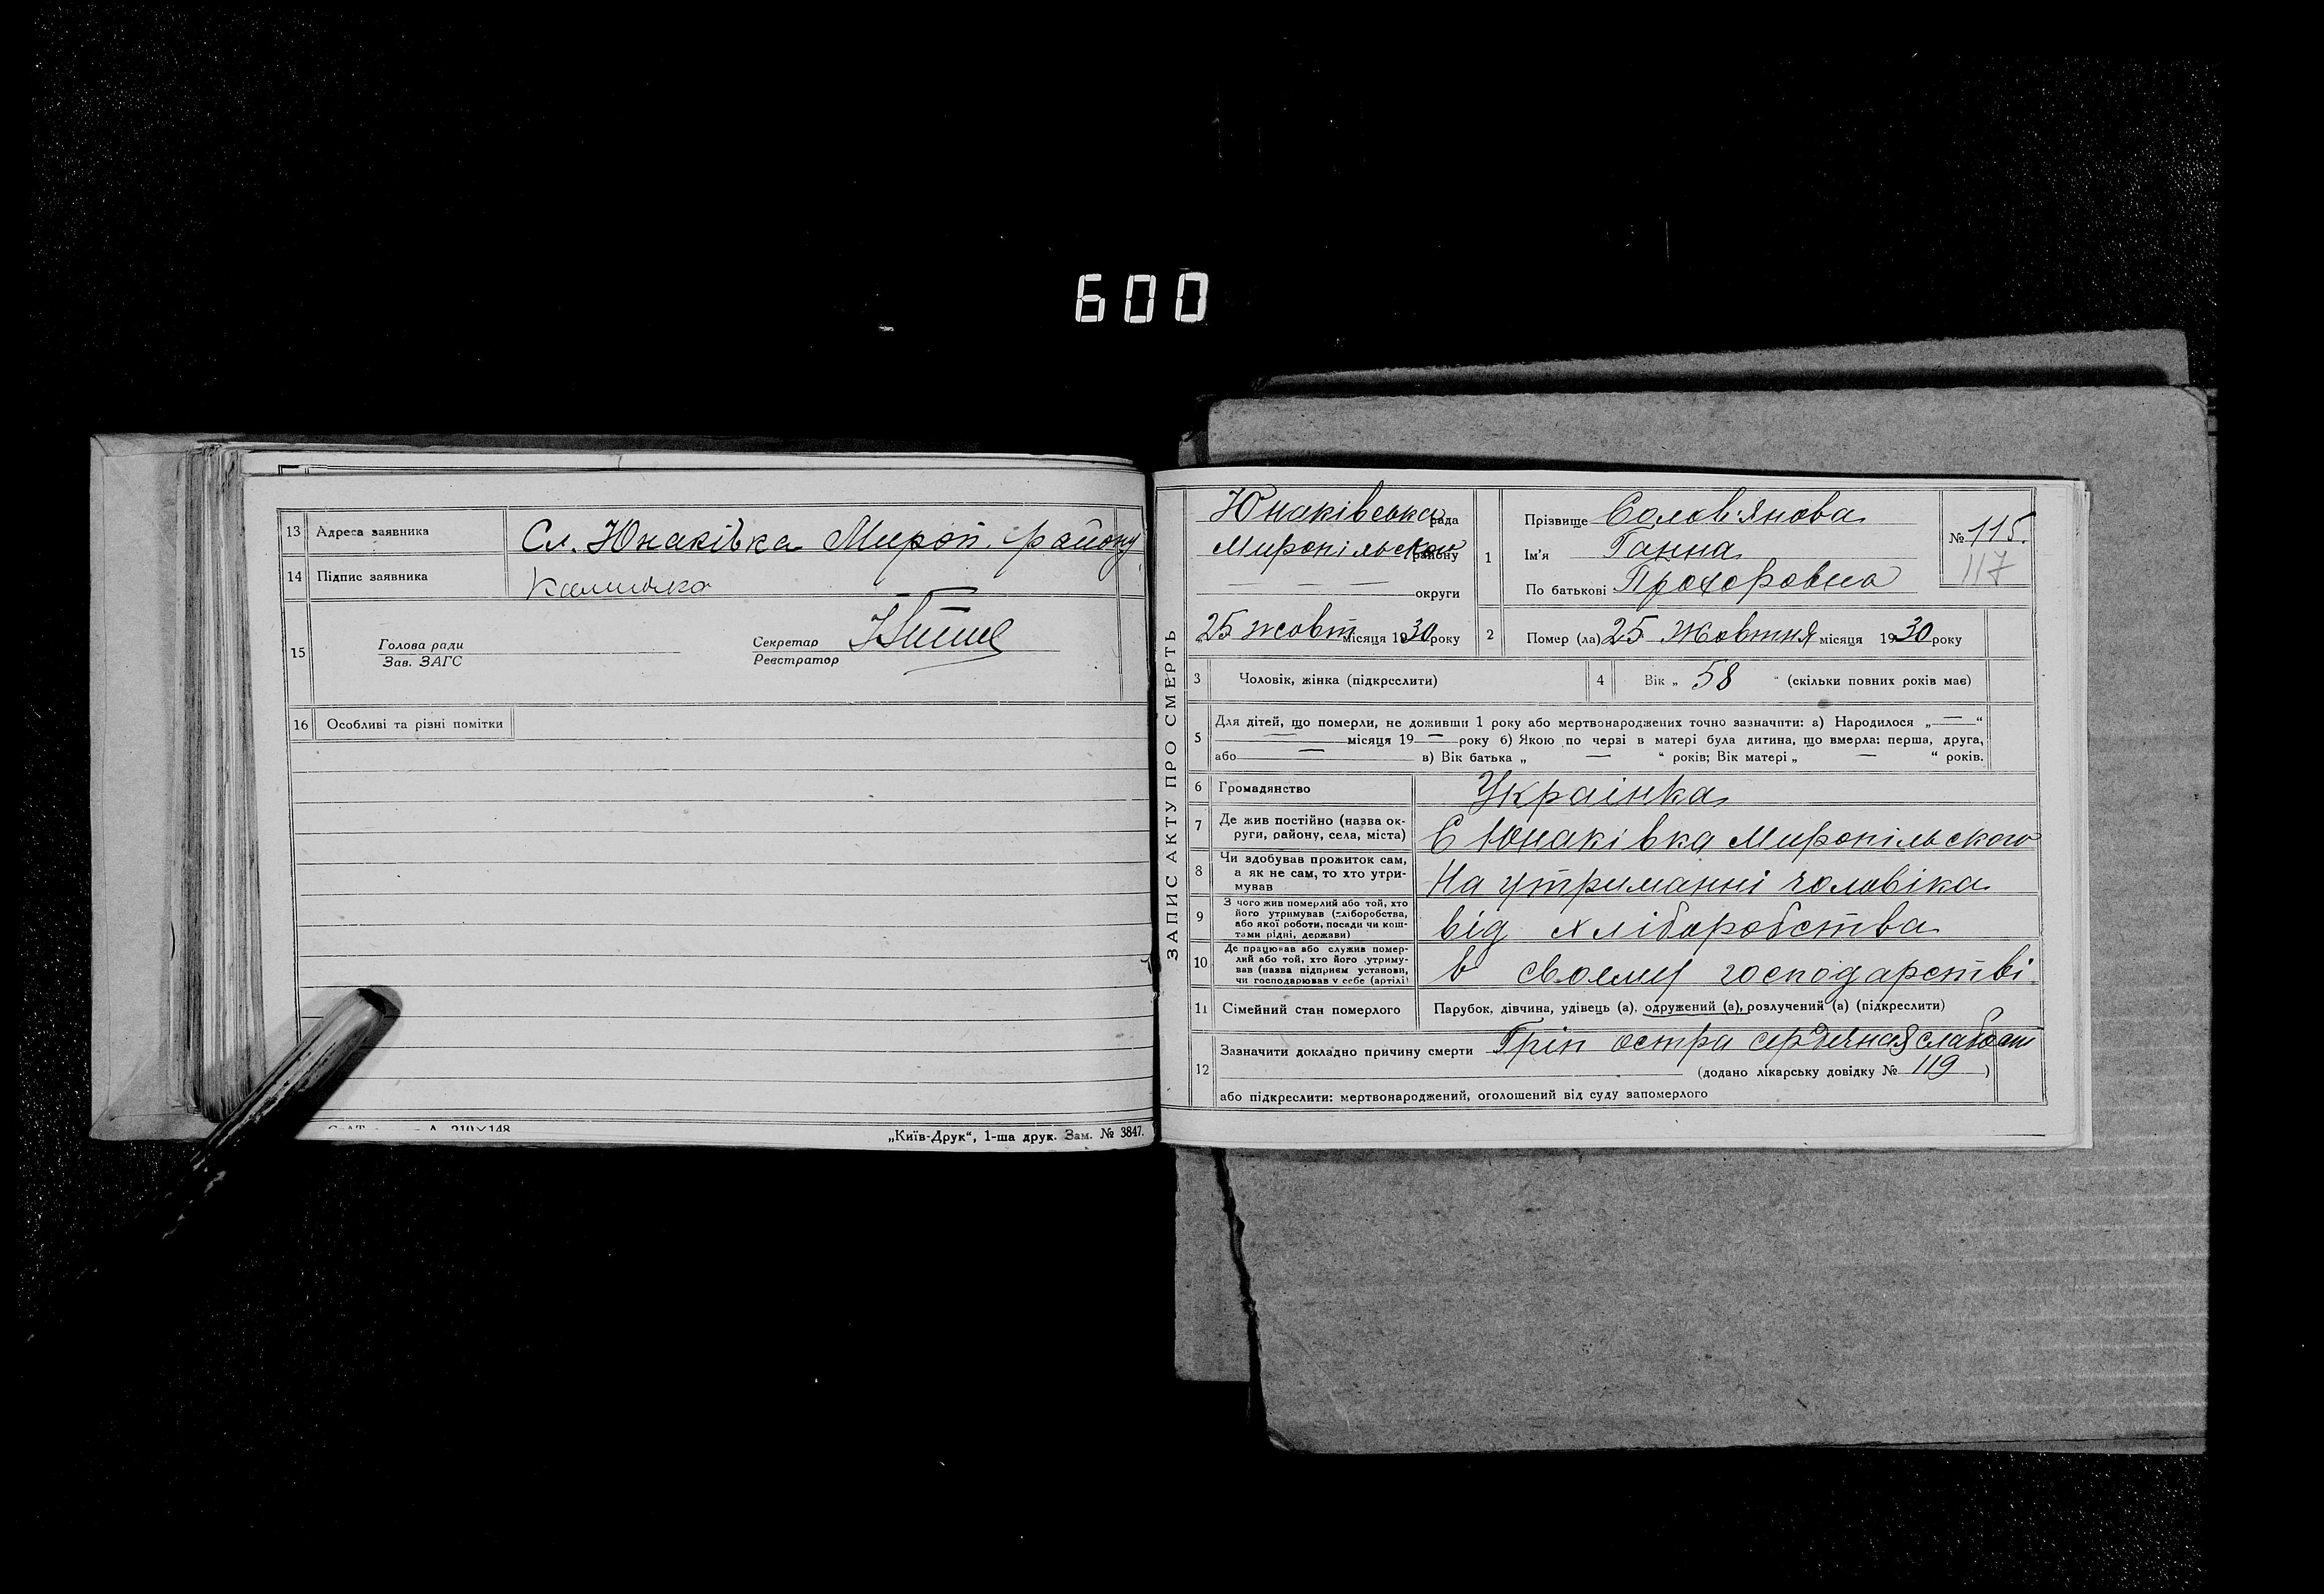 600
13 Адреса заявника Сл. Юнаківка Мироп. району
14 Підпис заявника
15 Голова ради
Зав. ЗАГС
Секретар
Реєстратор
16 Особливі та різні помітки
„Київ-Друк“, 1-ша друк. Зам. № 3847.
ЗАПИС АКТУ ПРО СМЕРТЬ
Юнаківська рада
Миропільськ району
— — — округи
25 жовт. місяця 1930 року
1 Прізвище Солов'янова
Ім'я Ганна
По батькові Прохоровна
№ 115.
117
2 Помер (ла) 25 Жовтня місяця 1930 року
3 Чоловік, жінка (підкреслити)
4 Вік „ 58 “ (скільки повних років має)
5 Для дітей, що померли, не доживши 1 року або мертвонароджених точно зазначити: а) Народилося „ — “
— місяця 19 — року б) Якою по черзі в матері була дитина, що вмерла: перша, друга,
або — в) Вік батька „ — “ років; Вік матері „ — “ років.
6 Громадянство Украінка
7 Де жив постійно (назва ок-
руги, району, села, міста) С Юнаківка Миропільского
8 Чи здобував прожиток сам,
а як не сам, то хто утри-
мував На утриманні чоловіка
9 З чого жив померлий або той, хто
його утримував (хліборобства,
або якої роботи, посади чи кош-
тами рідні, держави) від хліборобства
10 Де працював або служив помер-
лий або той, хто його утриму-
вав (назва підприєм установи,
чи господарював у себе (артілі) в своєму господарстві.
11 Сімейний стан померлого Парубок, дівчина, удівець (а), одружений (а), розлучений (а) (підкреслити)
12 Зазначити докладно причину смерти Гріп остра сердечная слабост
(додано лікарську довідку № 119 )
або підкреслити: мертвонароджений, оголошений від суду запомерлого